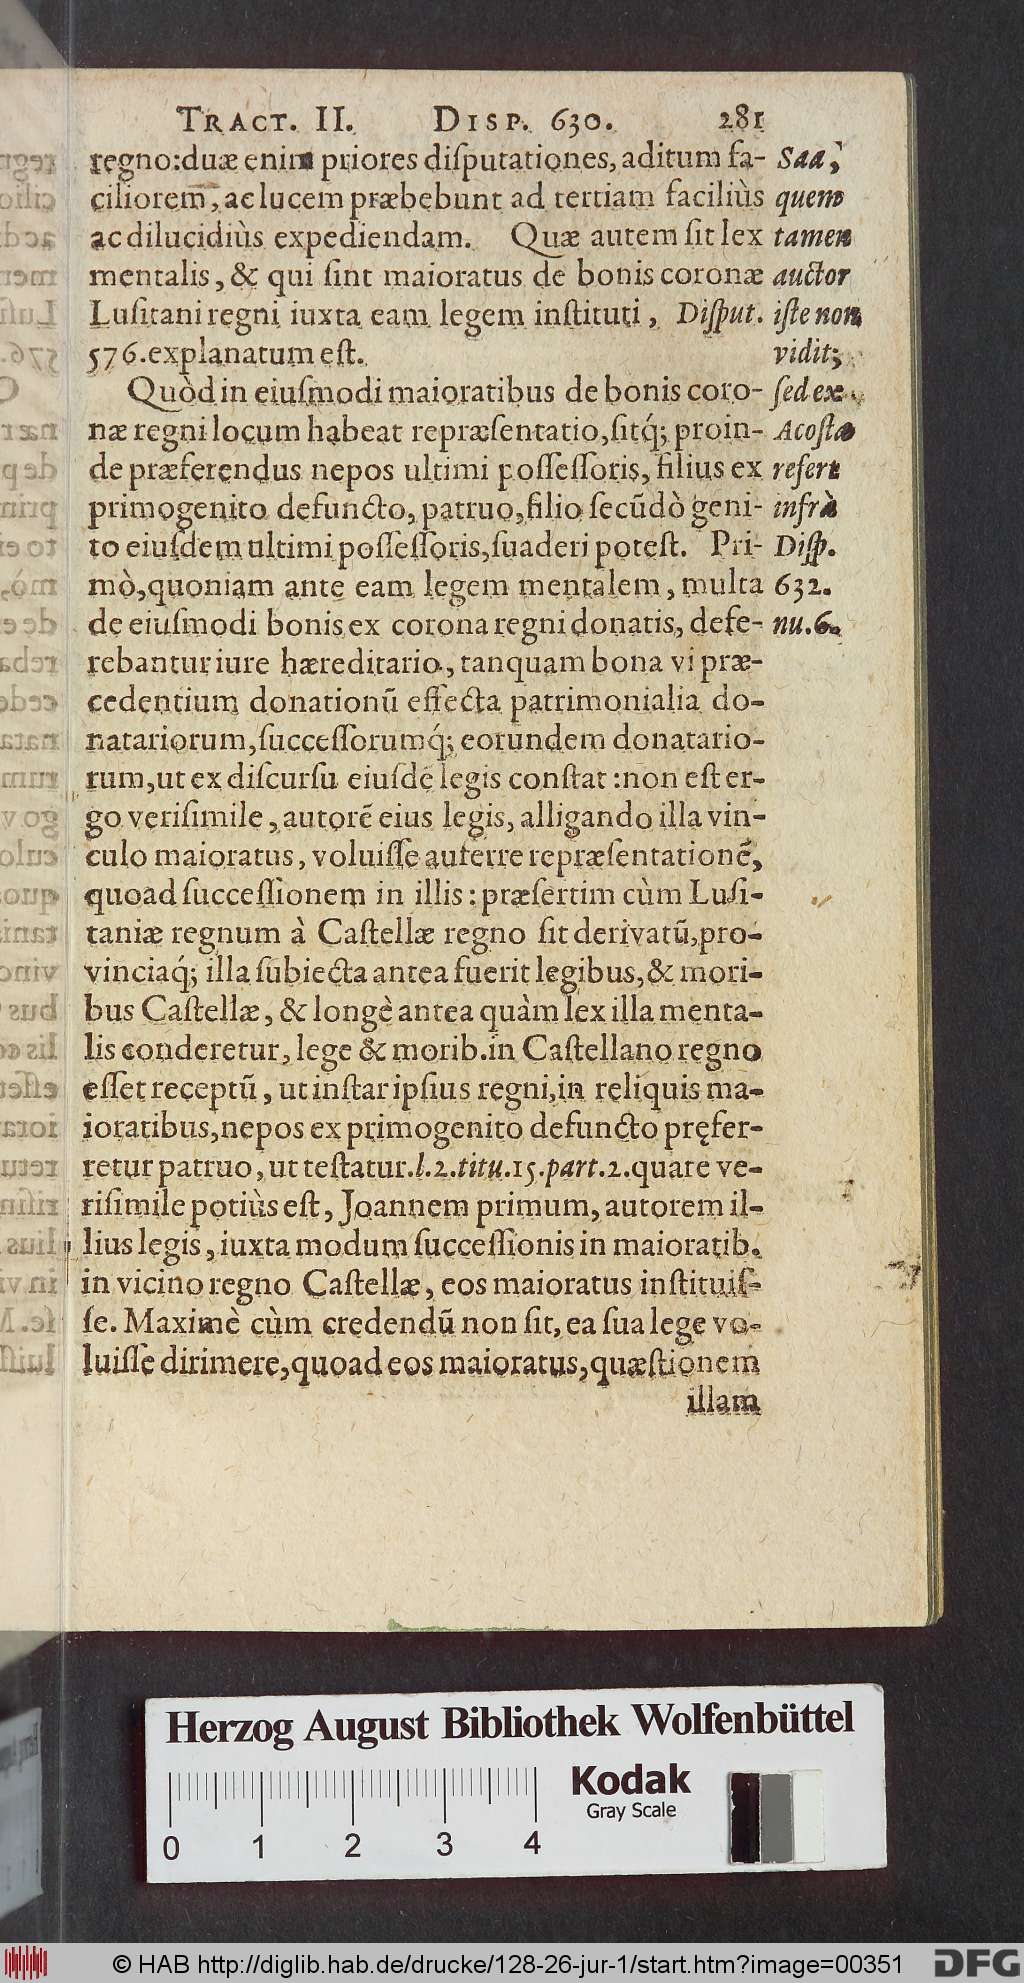 TRACT. II. DISP. 630. 281
regno:duæ enim priores diſputationes, aditum fa-
ciliorem, ac lucem præbebunt ad tertiam faciliùs
ac dilucidiùs expediendam. Quæ autem ſit lex
mentalis, & qui ſint maioratus de bonis coronæ
Luſitani regni iuxta eam legem inſtituti, Diſput.
576. explanatum eſt.
Quòd in eiuſmodi maioratibus de bonis coro-
næ regni locum habeat repræſentatio, ſitq́; proin-
de præferendus nepos ultimi poſſeſſoris, filius ex
primogenito defuncto, patruo, filio ſecũdò geni-
to eiuſdem ultimi poſſeſſoris, ſuaderi poteſt. Pri-
mò, quoniam ante eam legem mentalem, multa
de eiuſmodi bonis ex corona regni donatis, defe-
rebantur iure hæreditario, tanquam bona vi præ-
cedentium donationũ effecta patrimonialia do-
natariorum, ſucceſſorumq́; eorundem donatario-
rum, ut ex diſcurſu eiuſdẽ legis conſtat: non eſt er-
go veriſimile, autorẽ eius legis, alligando illa vin-
culo maioratus, voluiſſe auferre repræſentationẽ,
quoad ſucceſſionem in illis: præſertim cùm Luſi-
taniæ regnum à Caſtellæ regno ſit derivatũ, pro-
vinciaq́; illa ſubiecta antea fuerit legibus, & mori-
bus Caſtellæ, & longè antea quàm lex illa menta-
lis conderetur, lege & morib. in Caſtellano regno
eſſet receptũ, ut inſtar ipſius regni, in reliquis ma-
ioratibus, nepos ex primogenito defuncto pręfer-
retur patruo, ut teſtatur. l. 2. titu. 15. part. 2. quare ve-
riſimile potiùs eſt, Joannem primum, autorem il-
lius legis, iuxta modum ſucceſſionis in maioratib.
in vicino regno Caſtellæ, eos maioratus inſtituiſ-
ſe. Maximè cùm credendũ non ſit, ea ſua lege vo-
luiſſe dirimere, quoad eos maioratus, quæſtionem
illam
Saa,
quem
tamen
auctor
iſte non
vidit;
ſed ex
Acoſta
refert
infrà
Diſp.
632.
nu. 6.
Herzog August Bibliothek Wolfenbüttel
Kodak
Gray Scale
0 1 2 3 4
© HAB http://diglib.hab.de/drucke/128-26-jur-1/start.htm?image=00351
DFG